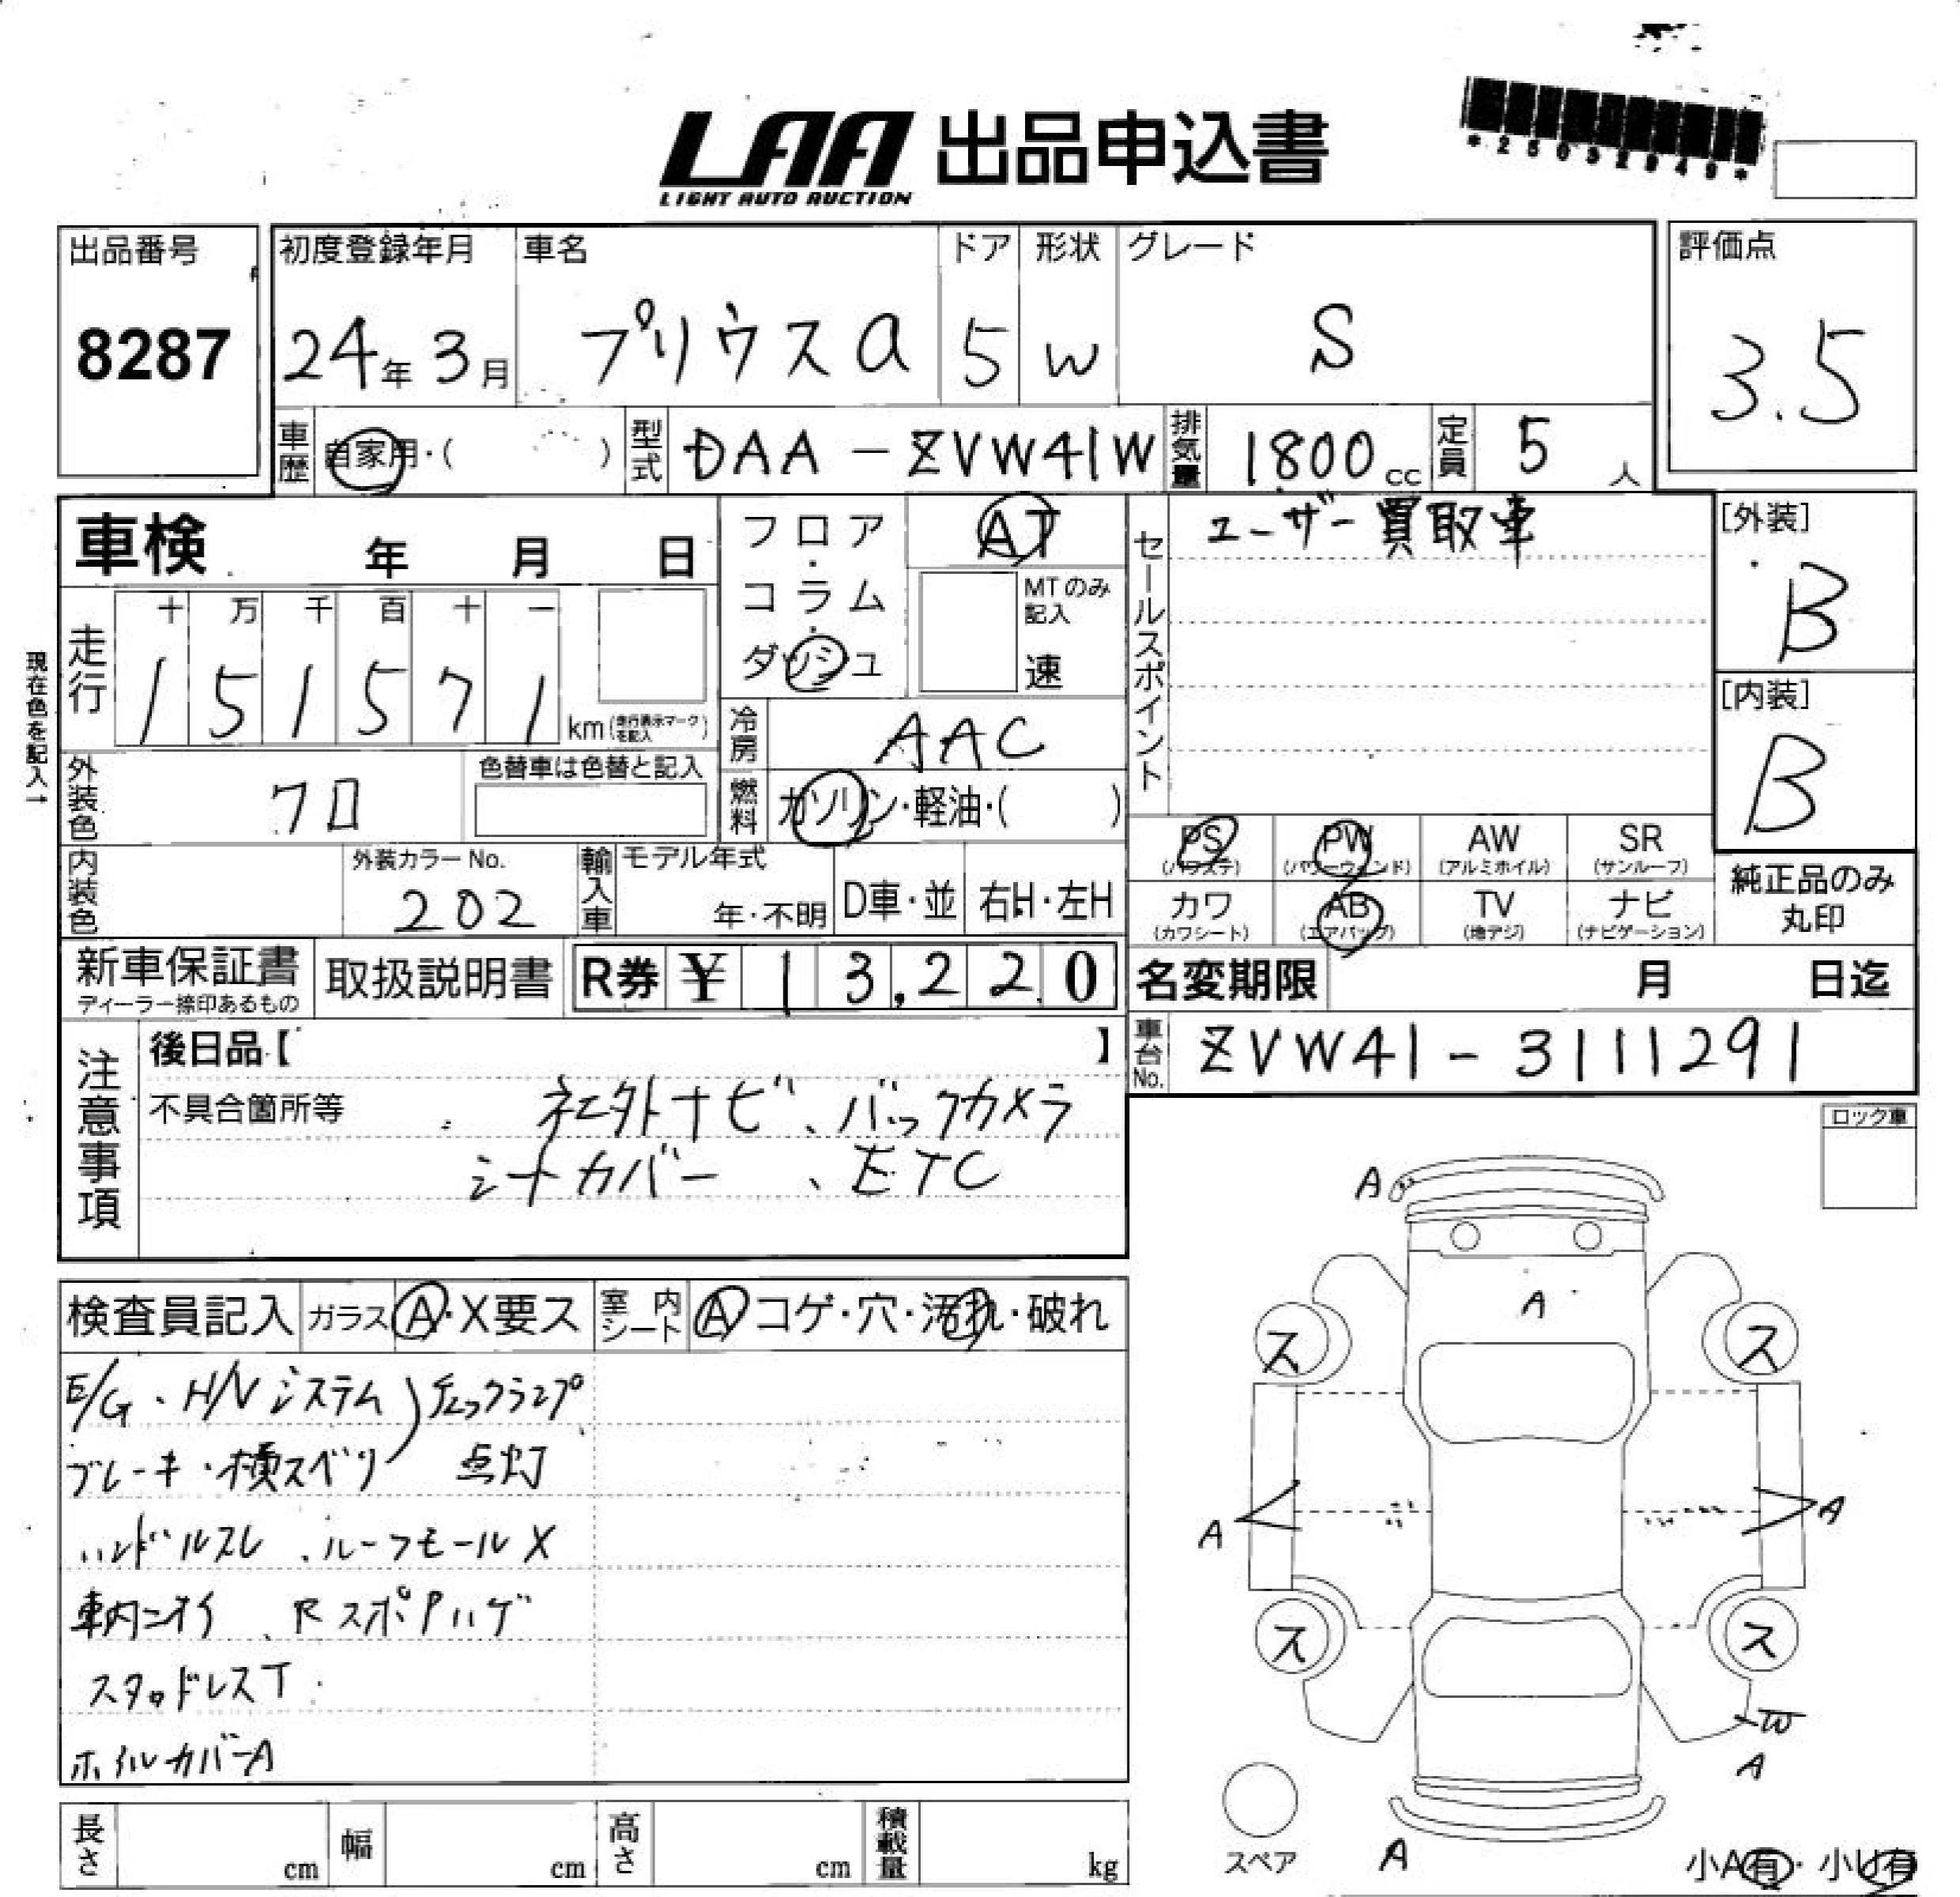 LAA 出品申込書
LIGHT AUTO AUCTION
*25032949*
出品番号
8287
初度登録年月
24年 3月
車名
プリウスα
ドア
5
形状
W
グレード
S
評価点
3.5
車歴
自家用・( )
型式
DAA-ZVW41W
排気量
1800cc
定員
5人
車検 年 月 日
フロア・コラム・ダッシュ
AT
MTのみ記入
速
セールスポイント
ユーザー買取車
[外装]
B
[内装]
B
現在色を記入→
走行
十 万 千 百 十 一
1 5 1 5 7 1 km(走行表示マークを記入)
冷房
AAC
外装色
クロ
色替車は色替と記入
燃料
ガソリン・軽油・( )
PS (パワステ)
PW (パワーウィンド)
AW (アルミホイル)
SR (サンルーフ)
内装色
外装カラーNo.
202
輸入車
モデル年式
年・不明
D車・並
右H・左H
カワ (カワシート)
AB (エアバッグ)
TV (地デジ)
ナビ (ナビゲーション)
純正品のみ丸印
新車保証書
ディーラー捺印あるもの
取扱説明書
R券 ¥ 13,220
名変期限 月 日迄
車台No.
ZVW41-3111291
注意事項
後日品【 】
不具合箇所等
社外ナビ、バックカメラ
シートカバー、ETC
ロック車
検査員記入
ガラス A・X要ス
室内シート A コゲ・穴・汚れ・破れ
E/G、H/Vシステム)チェックランプ
ブレーキ・横スベリ 点灯
ハンドルスレ、ルーフモールX
車内ニオイ、RスポPハゲ
スタッドレスT
ホイルカバーA
A
A
ス
ス
A
A
ス
ス
W
A
A
スペア
小A有・小U有
長さ cm
幅 cm
高さ cm
積載量 kg